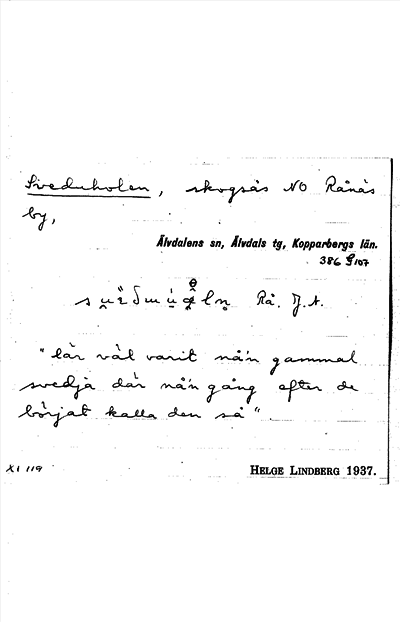 Sveduholen, skogsås NO Rånäs
by,
Älvdalens sn, Älvdals tg, Kopparbergs län.
386 107
Rå. J. A.
"lär väl varit nån gammal
svedja där nån gång efter de
börjat kalla den så"
XI 119
HELGE LINDBERG 1937.